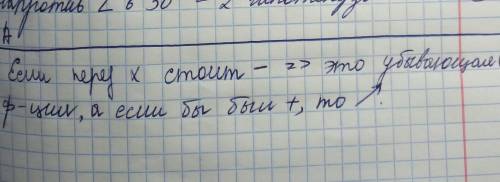 напротив ∠ в 30° - 2
A
Если перед x стоит - => это убывающая
ф-ция, а если бы был +, то ↗.